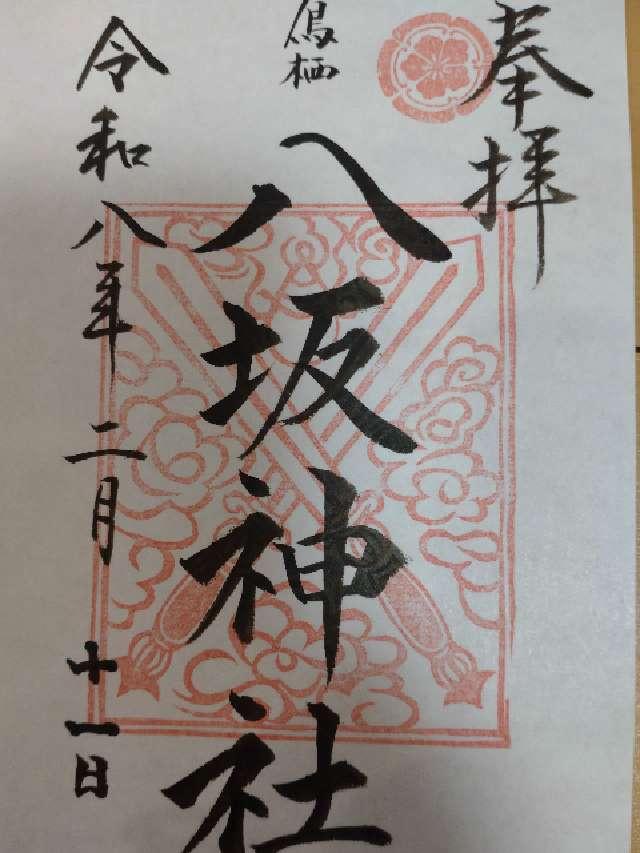 奉拝
鳥栖
八坂神社
令和八年二月十一日